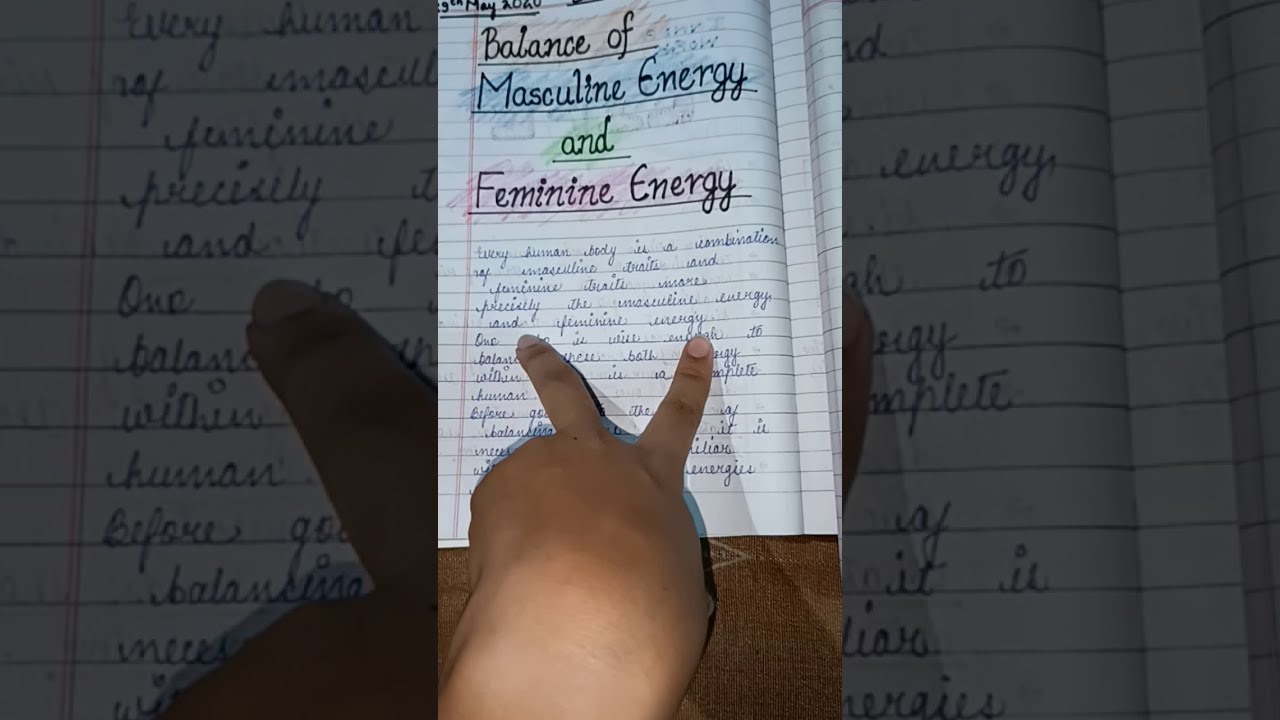 May 2020
Balance of
Masculine Energy
and
Feminine Energy
Every human body is a combination
of masculine traits and
feminine traits more
precisely the masculine energy
and feminine energy.
One is wise enough to
these both
within is a
human
Before the
balancing it is
with energies